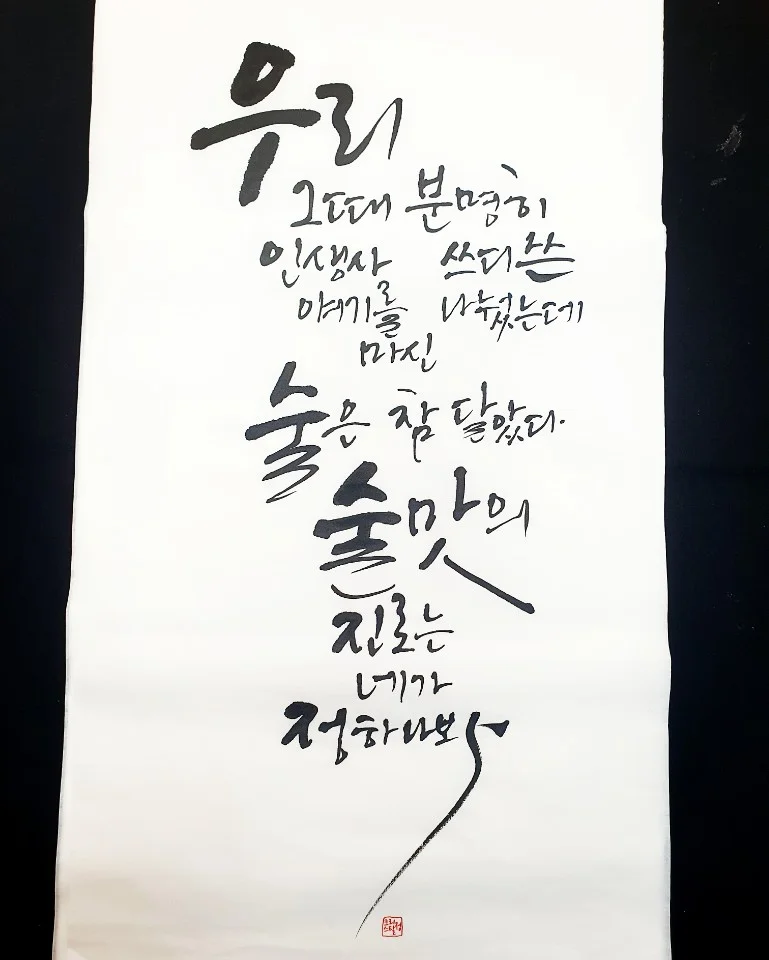 우리
그때 분명히
인생사 쓰디쓴
얘기를 나눴는데
마신
술은 참 달았다.
술맛의
진로는
네가
정하나보다